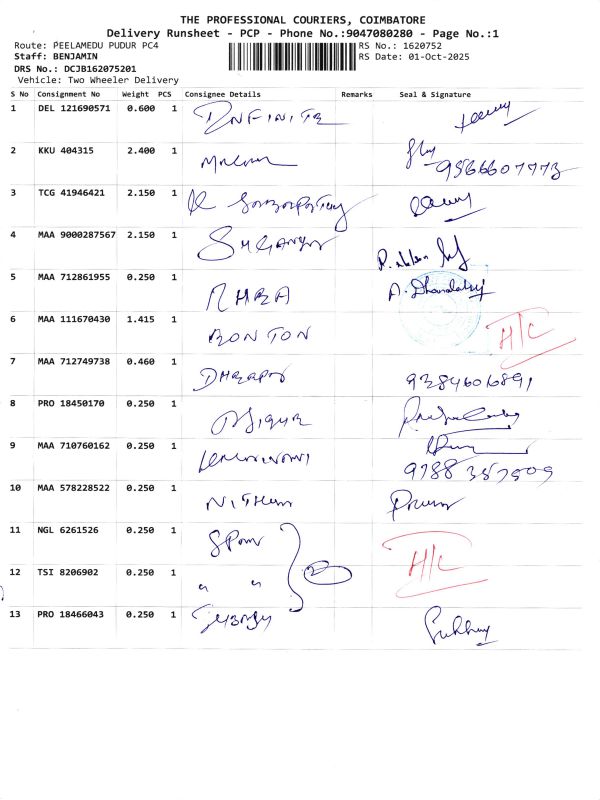 THE PROFESSIONAL COURIERS, COIMBATORE
Delivery Runsheet - PCP - Phone No.:9047080280 - Page No.:1
Route: PEELAMEDU PUDUR PC4 RS No.: 1620752
Staff: BENJAMIN RS Date: 01-Oct-2025
DRS No.: DCJB162075201
Vehicle: Two Wheeler Delivery
S No Consignment No Weight PCS Consignee Details Remarks Seal & Signature
1 DEL 121690571 0.600 1 INFINITE
2 KKU 404315 2.400 1
9566607773
3 TCG 41946421 2.150 1
4 MAA 9000287567 2.150 1
5 MAA 712861955 0.250 1 A. Dhanalakshmi
6 MAA 111670430 1.415 1 BONTON H/C
7 MAA 712749738 0.460 1 9384606891
8 PRO 18450170 0.250 1
9 MAA 710760162 0.250 1
9788 357509
10 MAA 578228522 0.250 1
11 NGL 6261526 0.250 1 H/C
12 TSI 8206902 0.250 1 " " 2
13 PRO 18466043 0.250 1